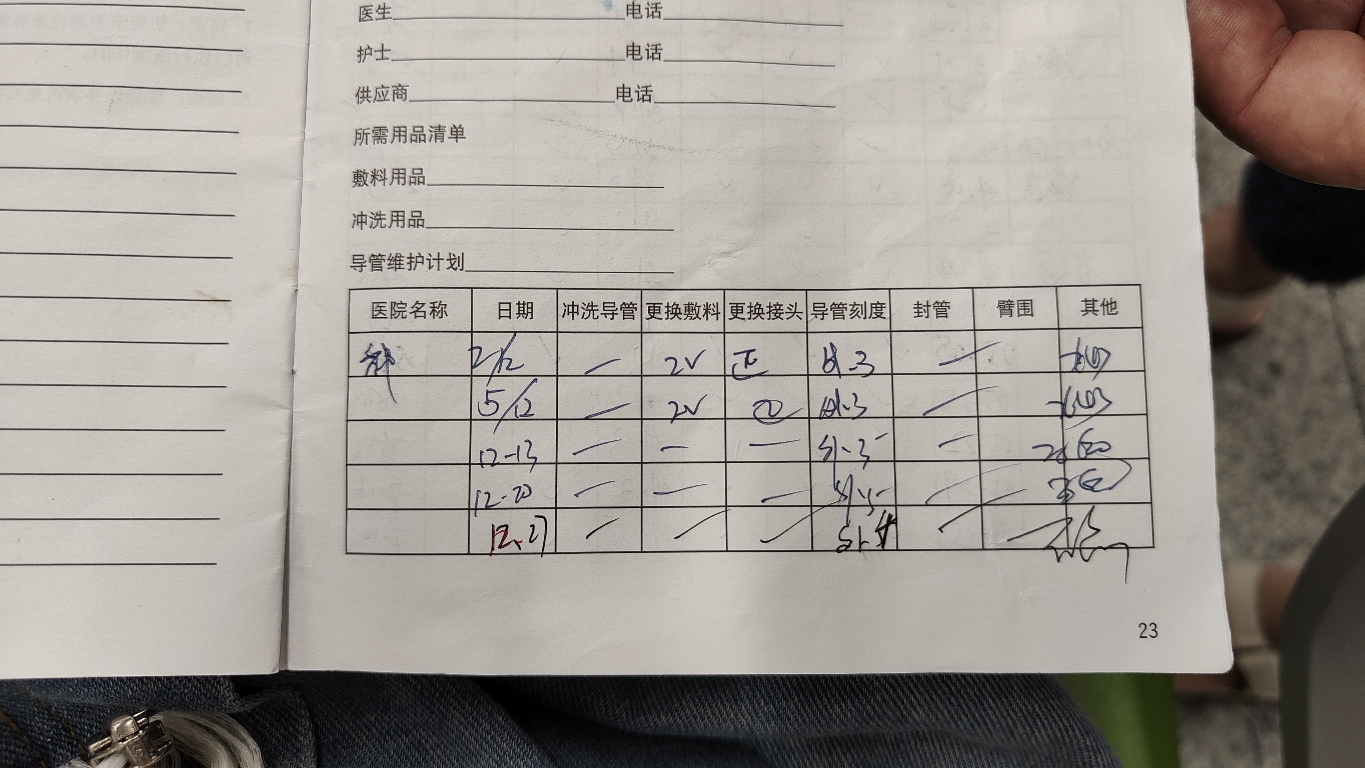 医生 电话
护士 电话
供应商 电话
所需用品清单
敷料用品
冲洗用品
导管维护计划
医院名称 日期 冲洗导管 更换敷料 更换接头 导管刻度 封管 臂围 其他
2/12 — 2V 正
5/12 — 2V
12-13 — — — —
12-20 — — — —
12.27 — — — — —
23